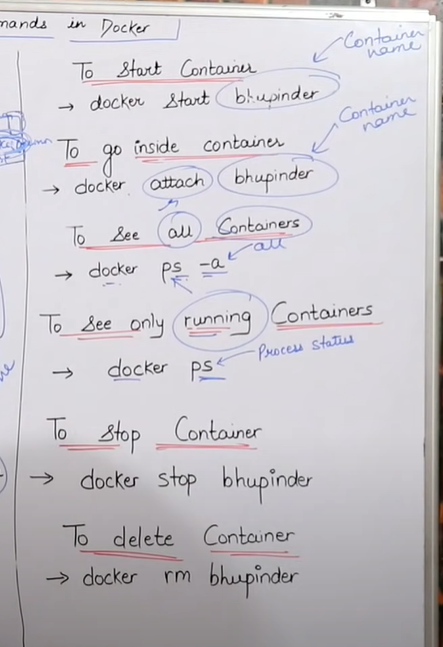 mands in Docker
Container
name
To Start Container
→ docker start bhupinder
Container
name
To go inside container
→ docker attach bhupinder
To see all Containers
all
→ docker ps -a
To see only running Containers
Process status
→ docker ps
To stop Container
→ docker stop bhupinder
To delete Container
→ docker rm bhupinder